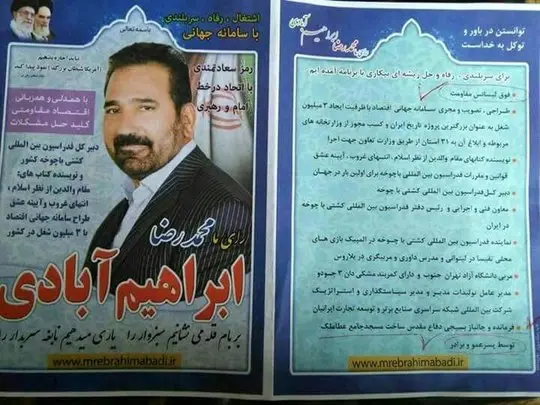 اشتغال ، رفاه ، سربلندی
با سامانه جهانی
باسمه تعالی
نباید اجازه بدهیم
آمریکا شیطان بزرگ نفوذ پیدا کند
رمز سعادتمندی
با اتحاد در خط
امام و رهبری
با همدلی و همزبانی
اقتصاد مقاومتی
کلید حل مشکلات
دبیر کل فدراسیون بین المللی
کشتی باچوخه کشور
و نویسنده کتاب های:
مقام والدین از نظر اسلام ،
انتهای غروب و آیینه عشق
طراح سامانه جهانی اقتصاد
با ۳ میلیون شغل در کشور
رای ما محمدرضا
ابراهیم آبادی
بر بام قله می نشانیم سبزوار را یاری میدهیم نابغه سربدار را
www.mrebrahimabadi.ir
توانستن در باور و
توکل به خداست
رای ما محمدرضا ابراهیم آبادی
برای سربلندی ، رفاه و حل ریشه ای بیکاری با برنامه آمده ایم
فوق لیسانس مقاومت
طراحی ، تصویب و مجری سامانه جهانی اقتصاد با ظرفیت ایجاد ۳ میلیون
شغل به عنوان بزرگترین پروژه تاریخ ایران و کسب مجوز از وزارتخانه های
مربوطه و ابلاغ آن به ۳۱ استان از طریق وزارت تعاون جهت اجرا
نویسنده کتابهای مقام والدین از نظر اسلام، انتهای غروب ، آیینه عشق
قوانین و مقررات فدراسیون بین المللی باچوخه برای اولین بار در جهان
دبیر کل فدراسیون بین المللی کشتی با چوخه
معاون فنی و اجرایی و رئیس دفتر فدراسیون بین المللی کشتی با چوخه
در ایران
نماینده فدراسیون بین المللی کشتی با چوخه در المپیک بازی های
محلی تفیسا در لیتوانی و مدرس داوری و مربیگری در بلاروس
مربی دانشگاه آزاد تهران جنوب و دارای کمربند مشکی دان ۳ جودو
مدیر عامل تولیدات مدبر و مدیر سیاستگذاری و استراتژیک
شرکت بین المللی شبکه سراسری صنایع برتر و توسعه تجارت ایرانیان
فرمانده و جانباز بسیجی دفاع مقدس ساخت مسجد جامع عطاملک
توسط پسرعمو و برادر
www.mrebrahimabadi.ir